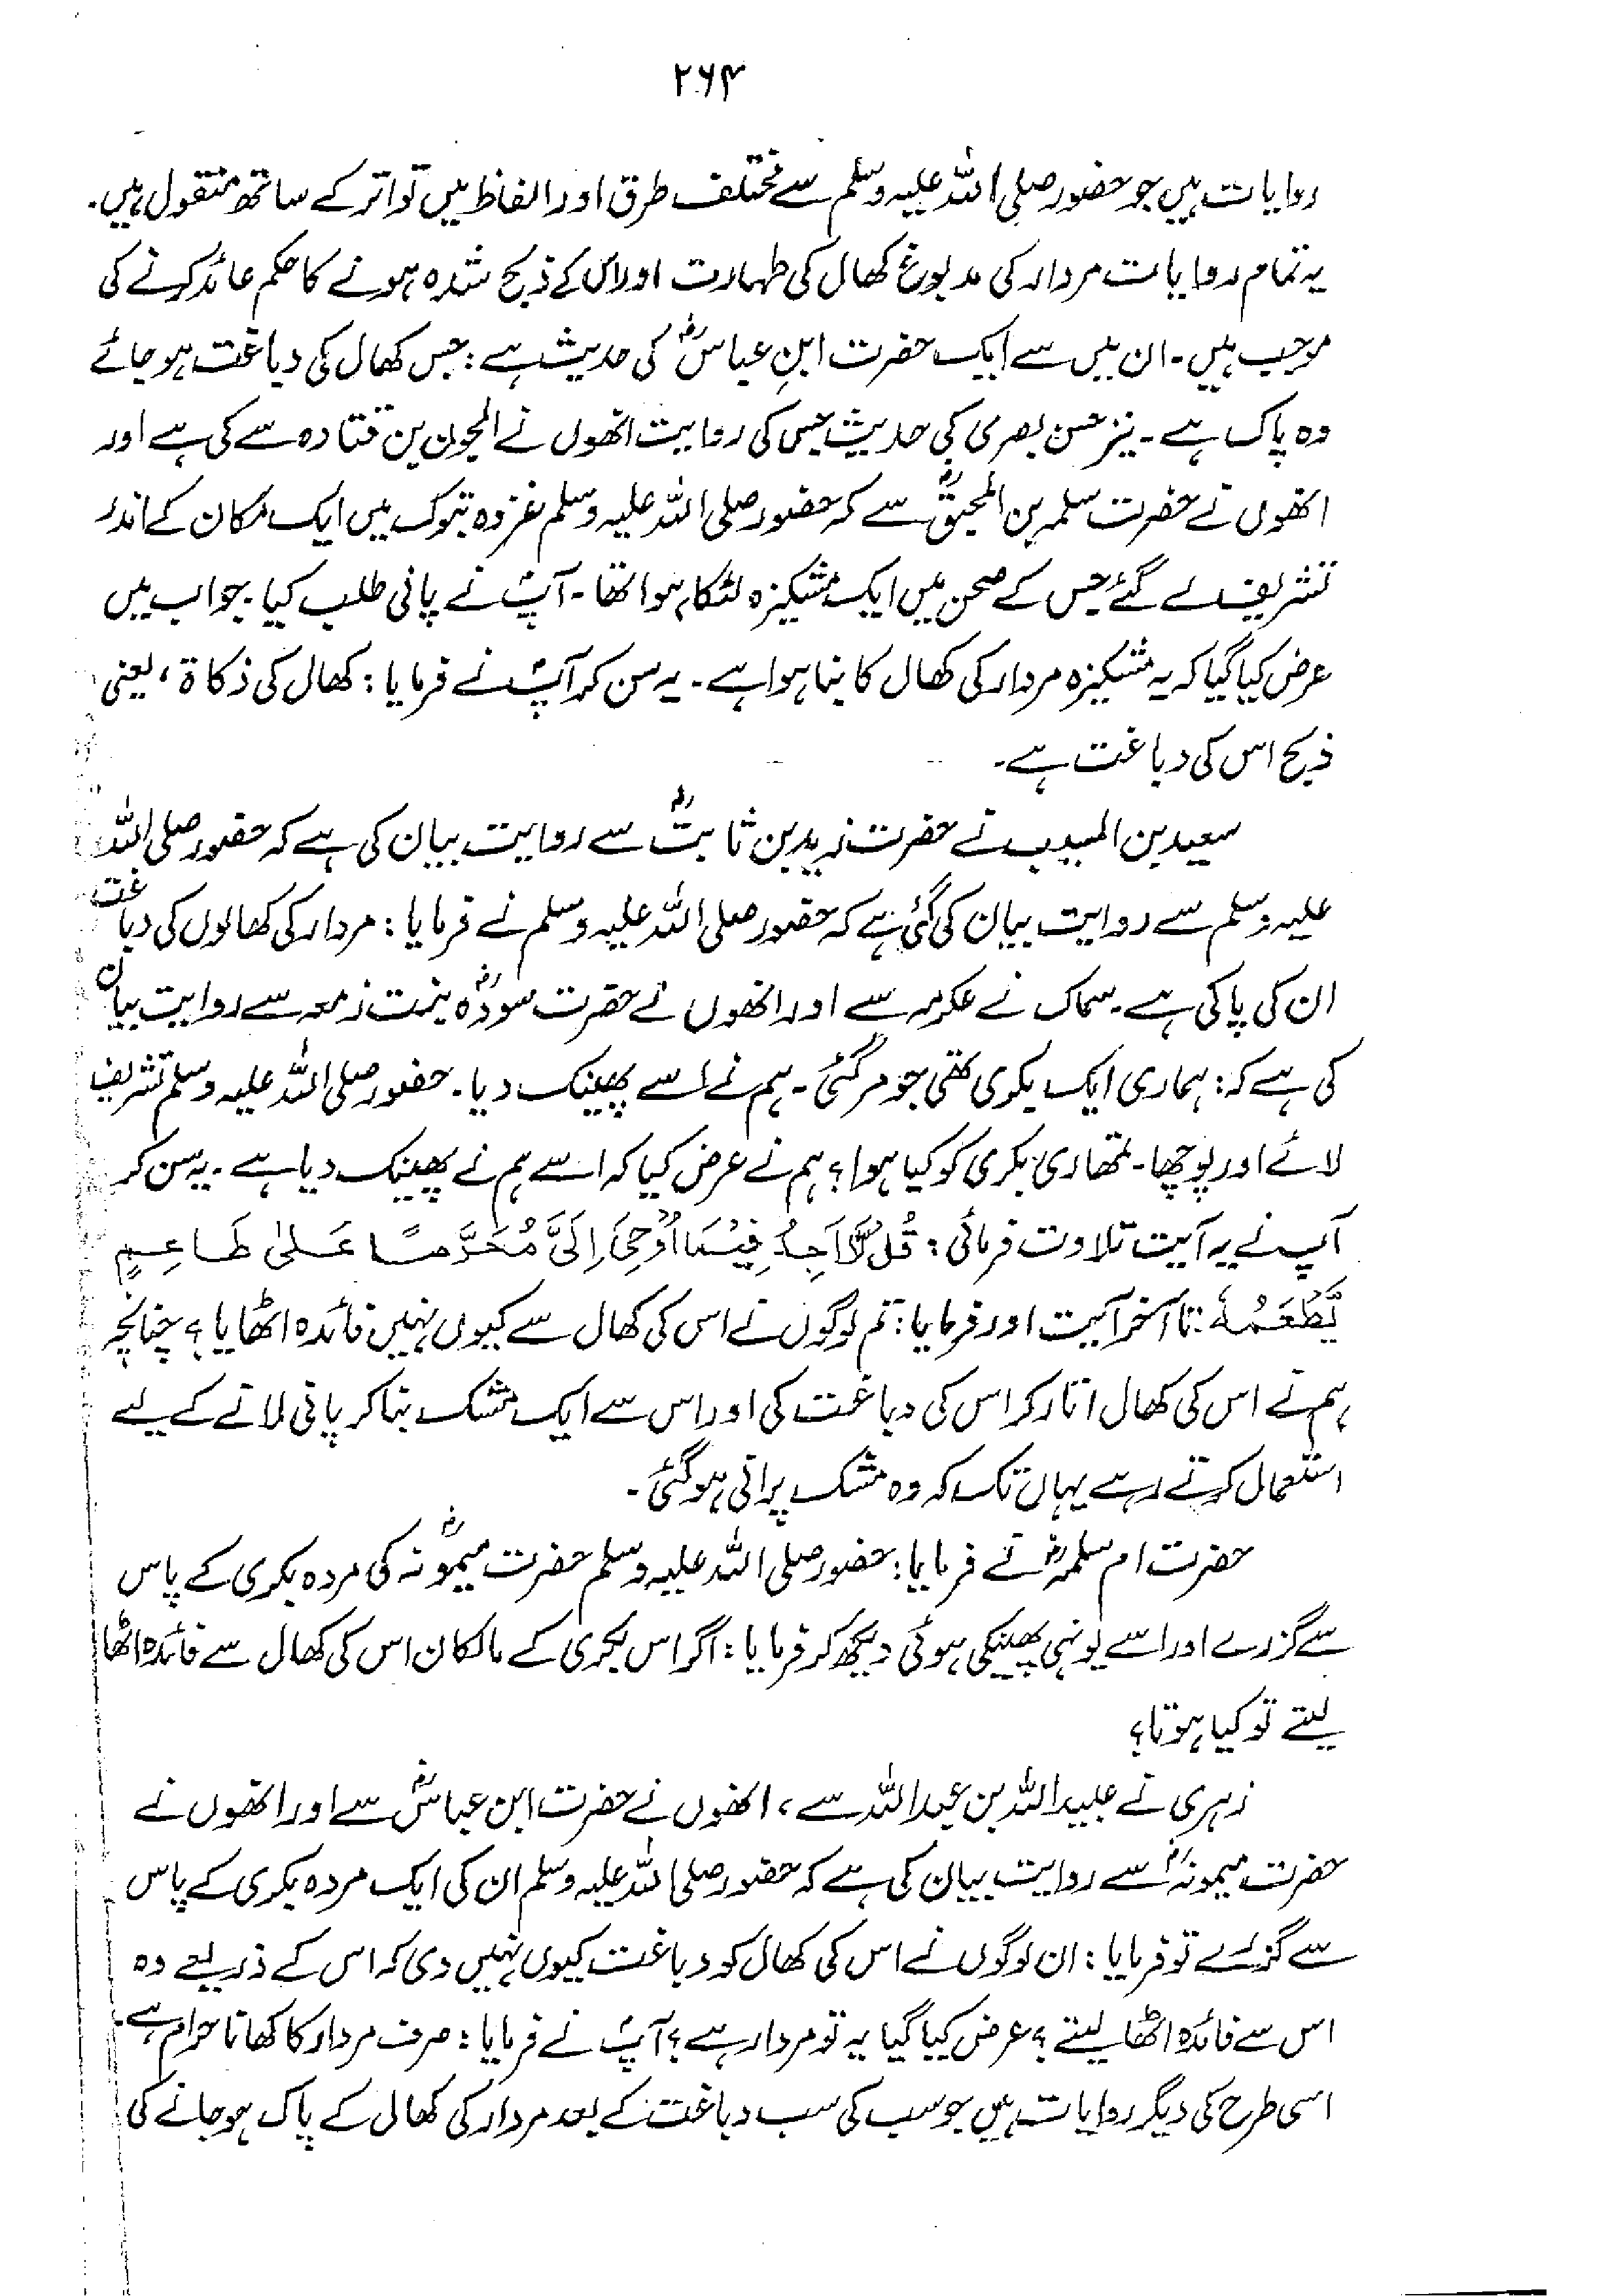 ۲۶۴
روایات ہیں جو حضور صلی اللہ علیہ وسلم سے مختلف طرق اور الفاظ میں تواتر کے ساتھ منقول ہیں۔
یہ تمام روایات مردار کی مدبوغ کھال کی طہارت اور اس کے ذبح شدہ ہونے کا حکم عائد کرنے کی
موجب ہیں۔ ان میں سے ایک حضرت ابنِ عباسؓ کی حدیث ہے: جس کھال کی دباغت ہو جائے
وہ پاک ہے۔ نیز حسن بصری کی حدیث جس کی روایت انھوں نے الجون بن قتادہ سے کی ہے اور
انھوں نے حضرت سلمہ بن المحبقؓ سے کہ حضور صلی اللہ علیہ وسلم غزوہ تبوک میں ایک مکان کے اندر
تشریف لے گئے جس کے صحن میں ایک مشکیزہ لٹکا ہوا تھا۔ آپؐ نے پانی طلب کیا۔ جواب میں
عرض کیا گیا کہ یہ مشکیزہ مردار کی کھال کا بنا ہوا ہے۔ یہ سن کر آپؐ نے فرمایا: کھال کی ذکاۃ، یعنی
ذبح اس کی دباغت ہے۔
سعید بن المسیب نے حضرت زید بن ثابتؓ سے روایت بیان کی ہے کہ حضور صلی اللہ
علیہ وسلم سے روایت بیان کی گئی ہے کہ حضور صلی اللہ علیہ وسلم نے فرمایا: مردار کی کھالوں کی دباغت
ان کی پاکی ہے۔ سماک نے عکرمہ سے اور انھوں نے حضرت سودہؓ بنت زمعہ سے روایت بیان
کی ہے کہ: ہماری ایک بکری تھی جو مر گئی۔ ہم نے اسے پھینک دیا۔ حضور صلی اللہ علیہ وسلم تشریف
لائے اور پوچھا۔ تمھاری بکری کو کیا ہوا؟ ہم نے عرض کیا کہ اسے ہم نے پھینک دیا ہے۔ یہ سن کر
آپ نے یہ آیت تلاوت فرمائی: قُلْ لَّا اَجِدُ فِیْمَا اُوْحِیَ اِلَیَّ مُحَرَّمًا عَلٰی طَاعِمٍ
یَّطْعَمُہٗ: تا آخر آیت اور فرمایا: تم لوگوں نے اس کی کھال سے کیوں نہیں فائدہ اٹھایا؟ چنانچہ
ہم نے اس کی کھال اتار کر اس کی دباغت کی اور اس سے ایک مشک بنا کر پانی لانے کے لیے
استعمال کرتے رہے یہاں تک کہ وہ مشک پرانی ہو گئی۔
حضرت ام سلمہؓ نے فرمایا: حضور صلی اللہ علیہ وسلم حضرت میمونہؓ کی مردہ بکری کے پاس
سے گزرے اور اسے یونہی پھینکی ہوئی دیکھ کر فرمایا: اگر اس بکری کے مالکان اس کی کھال سے فائدہ اٹھا
لیتے تو کیا ہوتا؟
زہری نے عبیداللہ بن عبداللہ سے، انھوں نے حضرت ابن عباسؓ سے اور انھوں نے
حضرت میمونہؓ سے روایت بیان کی ہے کہ حضور صلی اللہ علیہ وسلم ان کی ایک مردہ بکری کے پاس
سے گزرے تو فرمایا: ان لوگوں نے اس کی کھال کو دباغت کیوں نہیں دی کہ اس کے ذریعے وہ
اس سے فائدہ اٹھا لیتے؟ عرض کیا گیا یہ تو مردار ہے؟ آپؐ نے فرمایا: صرف مردار کا کھانا حرام ہے۔
اسی طرح کی دیگر روایات ہیں جو سب کی سب دباغت کے بعد مردار کی کھال کے پاک ہو جانے کی